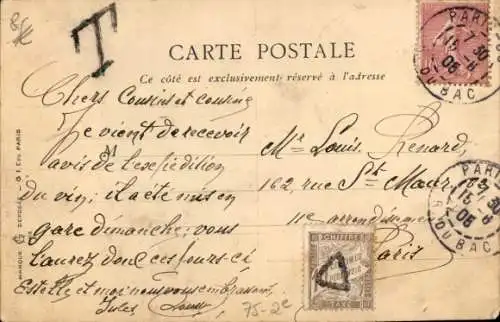 T
CARTE POSTALE
Ce côté est exclusivement réservé à l'adresse
Chers Cousins et cousine
Je vient de recevoir
avis de l'expédition
du vin; il a été mis en
gare dimanche; vous
l'aurez donc ces jours-ci
Estelle et moi nous vous embrassons
Jules
M
Mr Louis Renard,
162, rue St Maur,
11e arrondissement
Paris
75-2e
PARIS
7 30
15 -8
06
R. DU BAC
PARIS
7 30
15 -8
06
R. DU BAC
CHIFFRE
TAXE
T
MARQUE DÉPOSÉE
PARIS